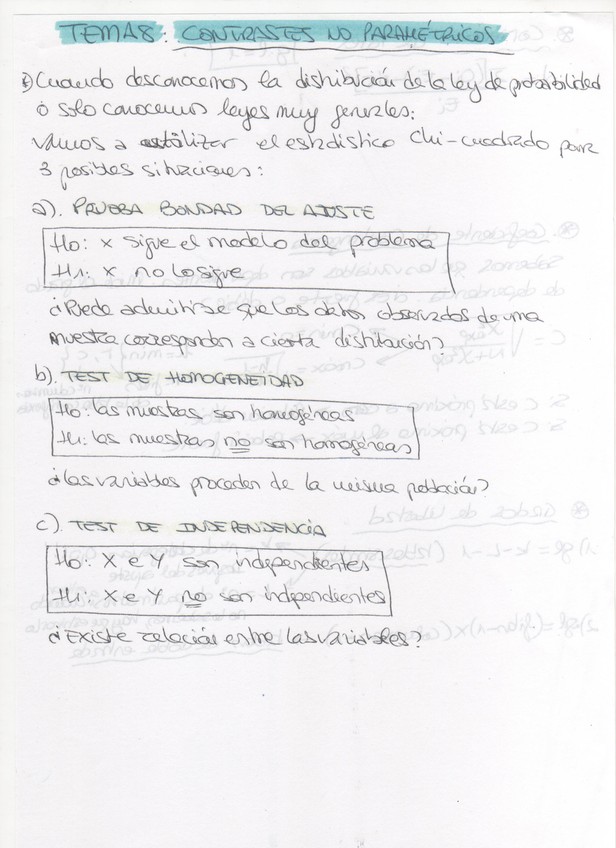 TEMA 8: CONTRASTES NO PARAMÉTRICOS
Cuando desconocemos la distribución de la ley de probabilidad
o solo conocemos leyes muy generales:
vamos a utilizar el estadístico Chi-cuadrado para
3 posibles situaciones:
a). PRUEBA BONDAD DEL AJUSTE
H0: x sigue el modelo del problema
H1: x no lo sigue
¿Puede admitirse que los datos observados de una
muestra corresponden a cierta distribución?
b). TEST DE HOMOGENEIDAD
H0: las muestras son homogéneas
H1: las muestras no son homogéneas
¿las variables proceden de la misma población?
c). TEST DE INDEPENDENCIA
H0: X e Y son independientes
H1: X e Y no son independientes
¿Existe relación entre las variables?